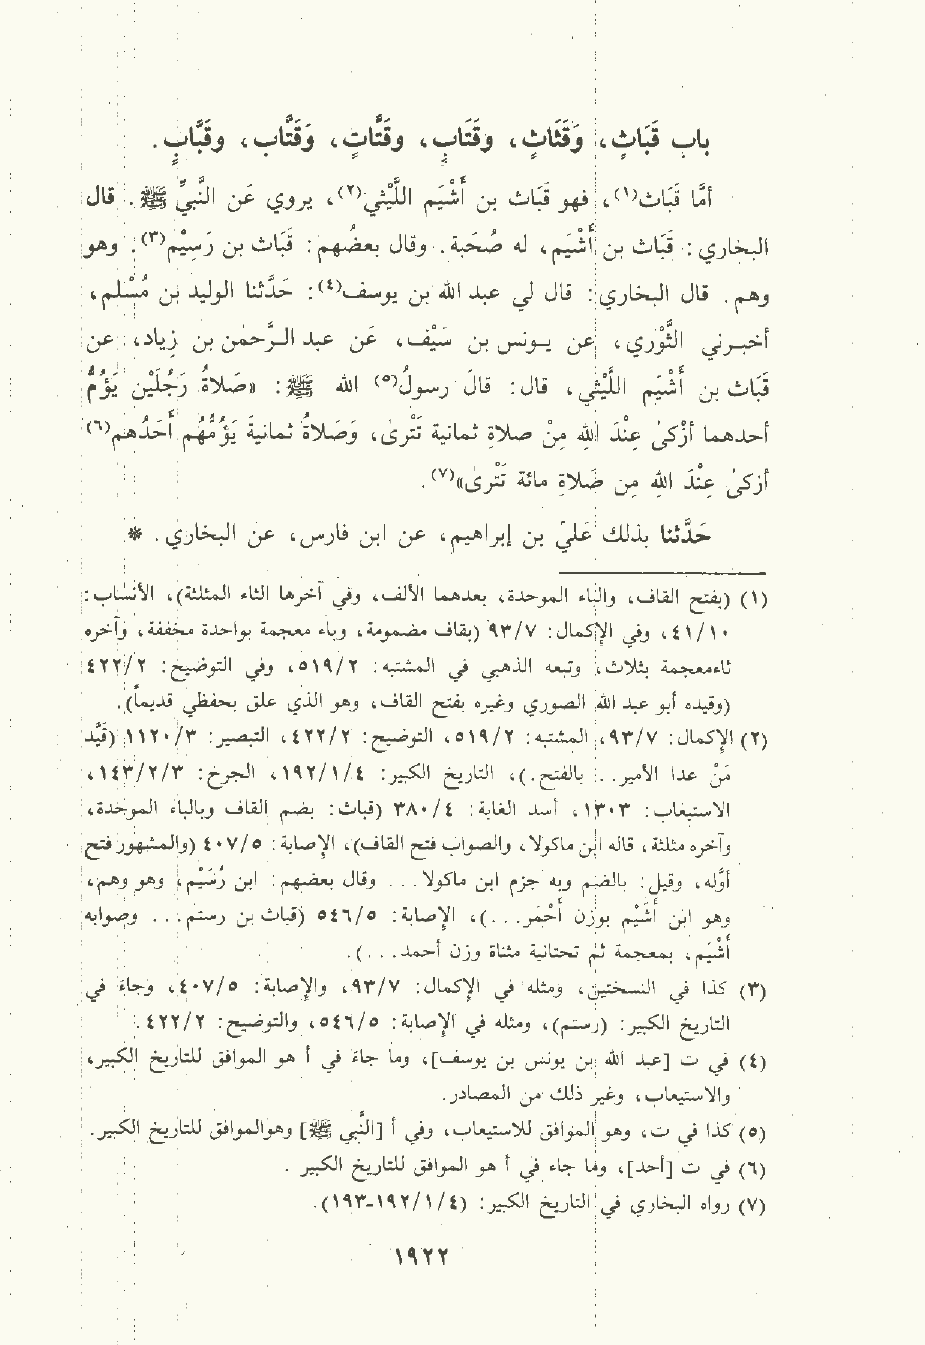 باب قَبَاثٍ، وَقَثَاثٍ، وقَتَابٍ، وقَتَّاتٍ، وَقَتَّاب، وقَبَّابٍ.
أمَّا قَبَاث(١)، فهو قَبَاث بن أَشْيَم اللَّيْثي(٢)، يروي عَن النَّبيِّ ﷺ. قال
البخاري: قَبَاث بن أَشْيَم، له صُحبَة. وقال بعضُهم: قَبَاث بن رَسِيْم(٣). وهو
وهم. قال البخاري: قال لي عبد الله بن يوسف(٤): حَدَّثنا الوليد بن مُسْلم،
أخبرني الثَّوْري، عن يونس بن سَيْف، عَن عبد الرَّحمٰن بن زِياد، عن
قَبَاث بن أَشْيَم اللَّيْثي، قال: قال رسولُ(٥) الله ﷺ: «صَلاةُ رَجُلَيْن يَؤُمُّ
أحدهما أزْكىٰ عِنْدَ اللهِ مِنْ صلاةِ ثمانية تَتْرىٰ، وَصَلاةُ ثمانية يَؤُمُّهُم أَحَدُهم(٦)
أزكىٰ عِنْدَ اللهِ مِن صَلاةِ مائة تَتْرىٰ»(٧).
حَدَّثنا بذلك عَليّ بن إبراهيم، عن ابن فارس، عن البخاري. *
(١) (بفتح القاف، والباء الموحدة، وبعدهما الألف، وفي آخرها الثاء المثلثة)، الأنساب:
٤١/١٠، وفي الإكمال: ٩٣/٧ (بقاف مضمومة، وباء معجمة بواحدة مخففة، وآخره
ثاء معجمة بثلاث، وتبعه الذهبي في المشتبه: ٥١٩/٢، وفي التوضيح: ٤٢٢/٢
(وقيده أبو عبد الله الصوري وغيره بفتح القاف، وهو الذي علق بحفظي قديماً).
(٢) الإكمال: ٩٣/٧، المشتبه: ٥١٩/٢، التوضيح: ٤٢٢/٢، التبصير: ١١٢٠/٣ (قَيَّد
مَنْ عدا الأمير.. بالفتح.)، التاريخ الكبير: ١٩٢/١/٤، الجرح: ١٤٣/٢/٣،
الاستيعاب: ١٣٠٣، أسد الغابة: ٣٨٠/٤ (قباث: بضم القاف وبالباء الموحدة،
وآخره مثلثة، قاله ابن ماكولا، والصواب فتح القاف)، الإصابة: ٤٠٧/٥ (والمشهور فتح
أوَّله، وقيل: بالضم وبه جزم ابن ماكولا... وقال بعضهم: ابن رَسَيْم، وهو وهم،
وهو ابن أشَيْم بوزن أحْمَر...)، الإصابة: ٥٤٦/٥ (قباث بن رستم... وصوابه
أَشْيَم، بمعجمة ثم تحتانية مثناة وزن أحمد...).
(٣) كذا في النسختين، ومثله في الإكمال: ٩٣/٧، والإصابة: ٤٠٧/٥، وجاء في
التاريخ الكبير: (رستم)، ومثله في الإصابة: ٥٤٦/٥، والتوضيح: ٤٢٢/٢.
(٤) في ت [عبد الله بن يونس بن يوسف]، وما جاء في أ هو الموافق للتاريخ الكبير،
والاستيعاب، وغير ذلك من المصادر.
(٥) كذا في ت، وهو الموافق للاستيعاب، وفي أ [النَّبي ﷺ] وهوالموافق للتاريخ الكبير.
(٦) في ت [أحد]، وما جاء في أ هو الموافق للتاريخ الكبير.
(٧) رواه البخاري في التاريخ الكبير: (١٩٢/١/٤-١٩٣).
١٩٢٢